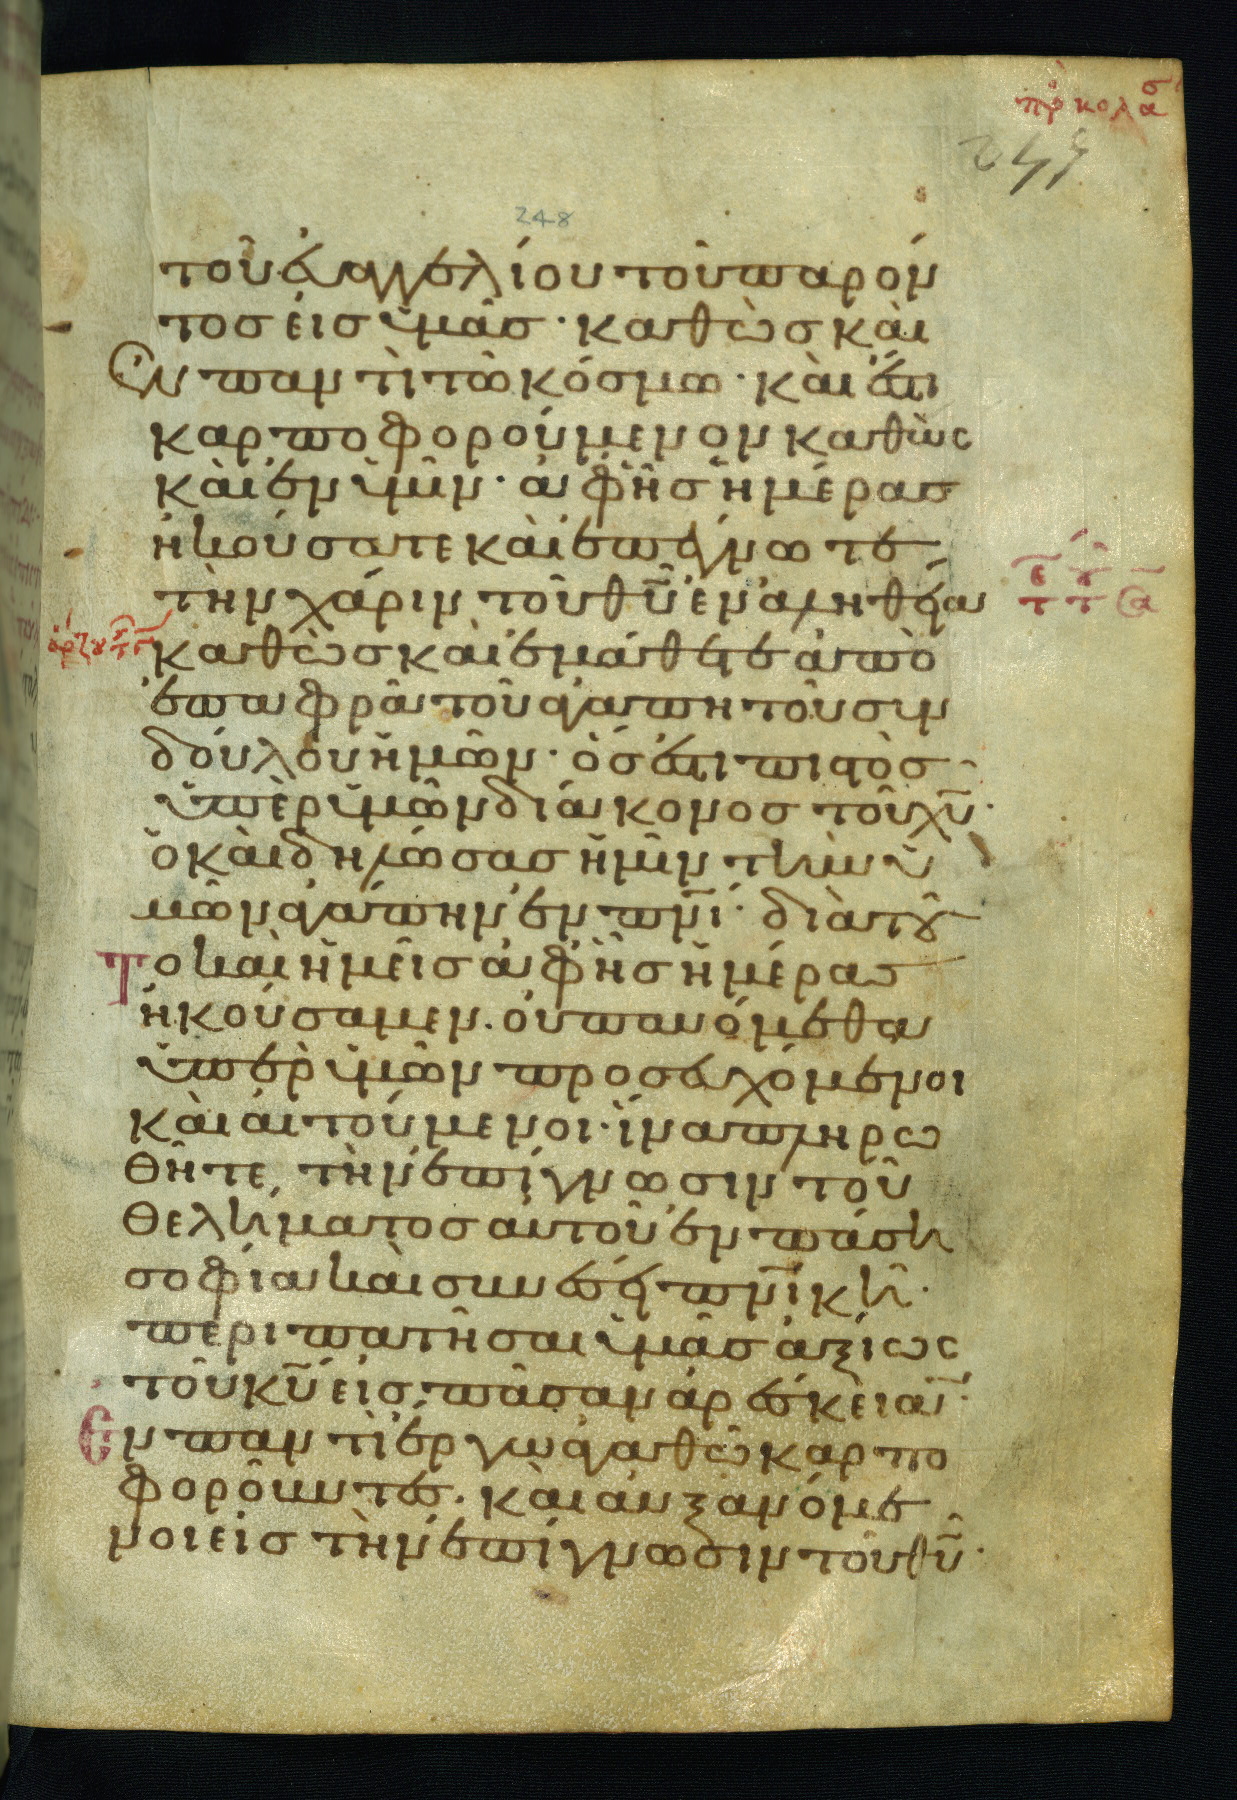 πρ κολασ
248
τοῦ ἐυαγγελίου τοῦ παρόν
τοσ ἐισ ὑμᾶσ · καθὼσ κὰι
Ἐν παντὶ τῶ κόσμω · κὰι ἔστι
καρποφορούμενον καθὼς
κὰι ἐν ὑμῖν · ἀφ ἧσ ἡμέρασ
ἠκούσατε κὰι ἐπέγνωτε
τὴν χάριν τοῦ θυ̅ ἐν ἀληθείαι
καθὼσ κὰι ἐμάθετε ἀπὸ
ἐπαφρᾶ τοῦ ἀγαπητοῦ συν
δούλου ἡμῶν · ὅσ ἔστι πιστὸσ
ὑπὲρ ὑμῶν διάκονοσ τοῦ χυ̅ ·
ὁ κὰι δηλώσασ ἡμῖν τὴν ὑ
μῶν ἀγάπην ἐν πν̅ι · διὰ τοῦ
Το καὶ ἡμεῖσ ἀφ ἧσ ἡμέρασ
ἠκούσαμεν · ὀυ παυόμεθα
ὑπὲρ ὑμῶν προσευχόμενοι
κὰι ἀιτούμενοι · ἵνα πληρω
θῆτε, τὴν ἐπίγνωσιν τοῦ
θελήματοσ ἀυτοῦ ἐν πάσῃ
σοφία κὰι συνέσει πν̅ικῆ ·
περιπατῆσαι ὑμᾶσ ἀξίως
τοῦ κυ̅ ἐισ πᾶσαν ἀρέσκειαν ·
Ἐν παντὶ ἔργω ἀγαθῶ καρπο
φοροῦντεσ · κὰι ἀυξανόμε
νοι ἐισ τὴν ἐπίγνωσιν τοῦ θυ̅ ·